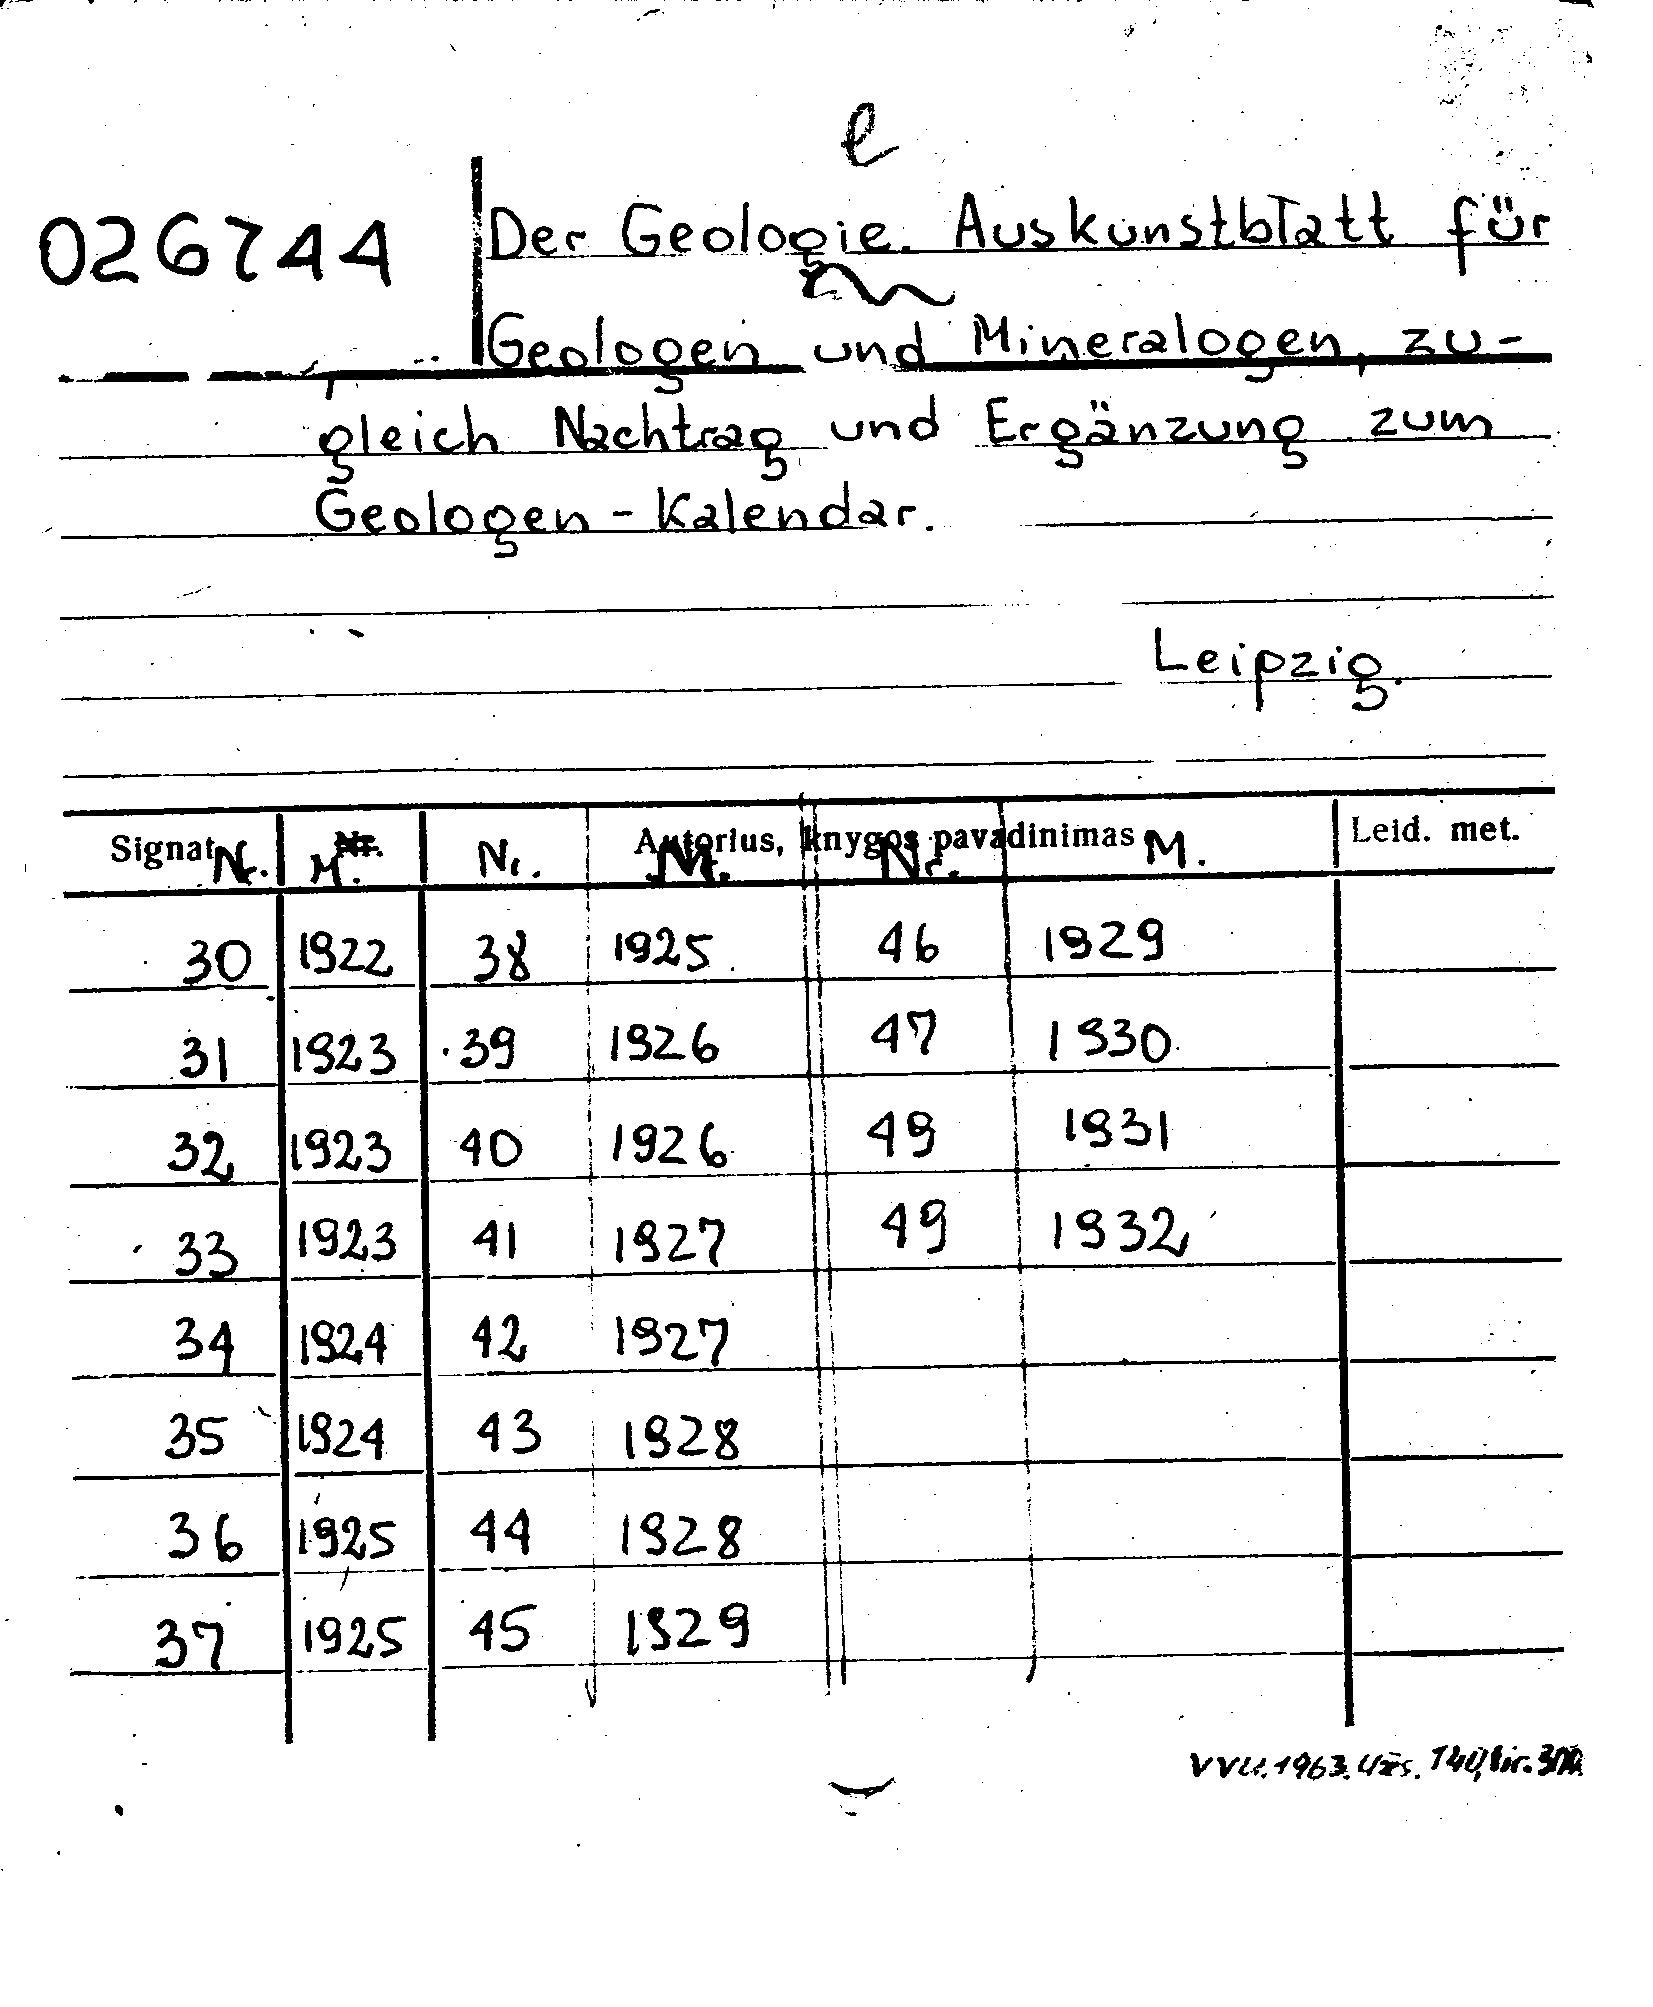 e
026744 Der Geologie. Auskunstblatt für
Geologen und Mineralogen, zu-
gleich Nachtrag und Ergänzung zum
Geologen-Kalendar.
Leipzig.
Signat. Nr. Autorius, knygos pavadinimas Leid. met.
Nr. M. Nr. M. Nr. M.
30 1922 38 1925 46 1929
31 1923 39 1926 47 1930
32 1923 40 1926 49 1931
33 1923 41 1927 49 1932
34 1924 42 1927
35 1924 43 1928
36 1925 44 1928
37 1925 45 1929
VVU. 1963. Užs. 140, tir.